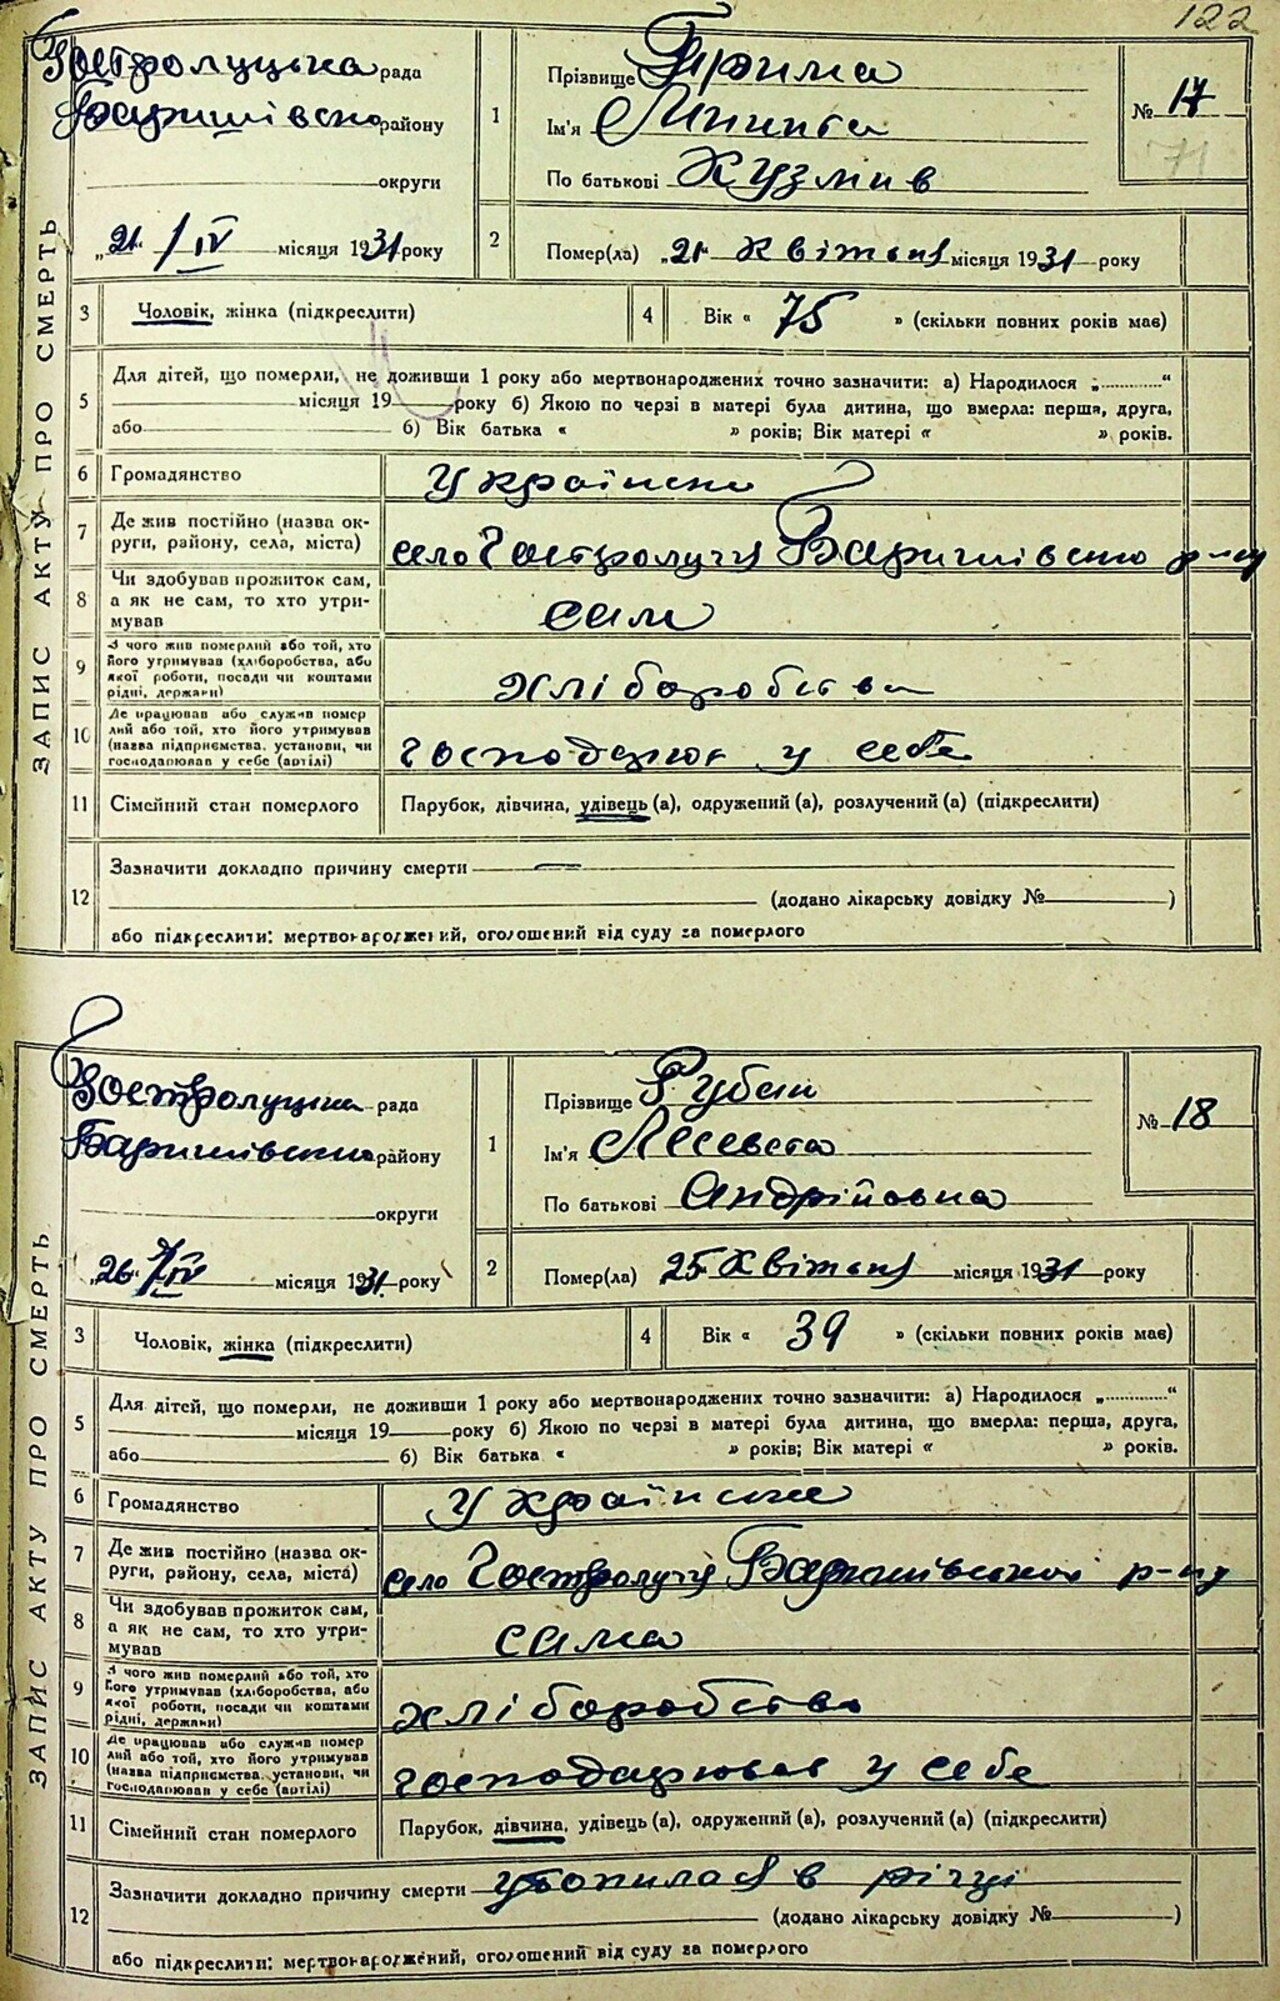 122
Гостролуцька рада
Баришівсько району
округи
„21“ / IV місяця 1931 року
1
Прізвище Ярима
Ім'я Микита
По батькові Кузмив
№ 17
71
2
Помер(ла) „21“ Квітня місяця 1931 року
ЗАПИС АКТУ ПРО СМЕРТЬ
3 Чоловік, жінка (підкреслити)
4 Вік « 75 » (скільки повних років має)
5 Для дітей, що померли, не доживши 1 року або мертвонароджених точно зазначити: а) Народилося „............“
місяця 19 року б) Якою по черзі в матері була дитина, що вмерла: перша, друга,
або б) Вік батька « » років; Вік матері « » років.
6 Громадянство Українець
7 Де жив постійно (назва ок-
руги, району, села, міста) село Гостролуччу Баришівсько р-ну
8 Чи здобував прожиток сам,
а як не сам, то хто утри-
мував сам
9 З чого жив померлий або той, хто
його утримував (хліборобства, або
якої роботи, посади чи коштами
рідні, держави) хліборобства
10 Де працював або служив помер
лий або той, хто його утримував
(назва підприємства, установи, чи
господарював у себе (артілі) господарює у себе
11 Сімейний стан померлого Парубок, дівчина, удівець (а), одружений (а), розлучений (а) (підкреслити)
12 Зазначити докладно причину смерти —
(додано лікарську довідку № )
або підкреслити: мертвонароджений, оголошений від суду за померлого
Гостролуцька рада
Баришівсько району
округи
„26“ / IV місяця 1931 року
1
Прізвище Рубан
Ім'я Лисевета
По батькові Андрійовна
№ 18
2
Помер(ла) 25 Квітня місяця 1931 року
ЗАПИС АКТУ ПРО СМЕРТЬ
3 Чоловік, жінка (підкреслити)
4 Вік « 39 » (скільки повних років має)
5 Для дітей, що померли, не доживши 1 року або мертвонароджених точно зазначити: а) Народилося „............“
місяця 19 року б) Якою по черзі в матері була дитина, що вмерла: перша, друга,
або б) Вік батька « » років; Вік матері « » років.
6 Громадянство Українське
7 Де жив постійно (назва ок-
руги, району, села, міста) село Гостролуччу Баришівської р-ну
8 Чи здобував прожиток сам,
а як не сам, то хто утри-
мував сама
9 З чого жив померлий або той, хто
його утримував (хліборобства, або
якої роботи, посади чи коштами
рідні, держави) хліборобства
10 Де працював або служив помер
лий або той, хто його утримував
(назва підприємства, установи, чи
господарював у себе (артілі) господарював у себе
11 Сімейний стан померлого Парубок, дівчина, удівець (а), одружений (а), розлучений (а) (підкреслити)
12 Зазначити докладно причину смерти утопилася в річці
(додано лікарську довідку № )
або підкреслити: мертвонароджений, оголошений від суду за померлого